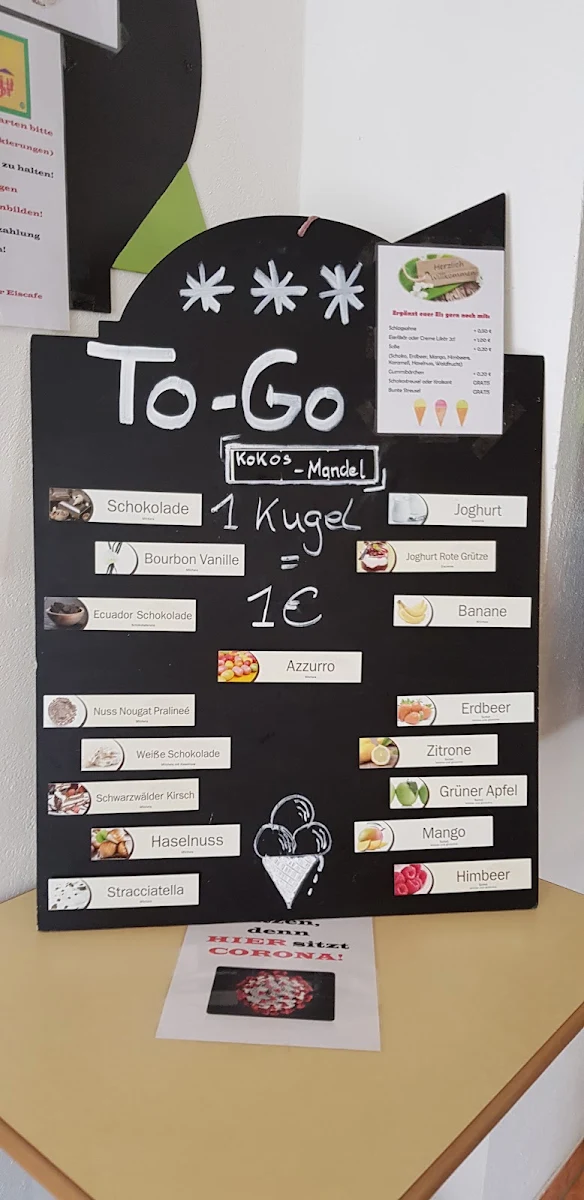 arten bitte
kierungen)
zu halten!
gen
nbilden!
zahlung
r Eiscafe
To-Go
Herzlich
Willkommen
Ergänzt euer Eis gern noch mit:
Schlagsahne + 0,50 €
Eierlikör oder Creme Likör 2cl + 1,00 €
Soße + 0,30 €
(Schoko, Erdbeer, Mango, Himbeere,
Karamell, Haselnuss, Waldfrucht)
Gummibärchen + 0,20 €
Schokostreusel oder Krokant GRATIS
Bunte Streusel GRATIS
KoKos-Mandel
1 Kugel
=
1€
Schokolade
Bourbon Vanille
Ecuador Schokolade
Azzurro
Nuss Nougat Pralineé
Weiße Schokolade
Schwarzwälder Kirsch
Haselnuss
Stracciatella
Joghurt
Joghurt Rote Grütze
Banane
Erdbeer
Zitrone
Grüner Apfel
Mango
Himbeer
denn
HIER sitzt
CORONA!